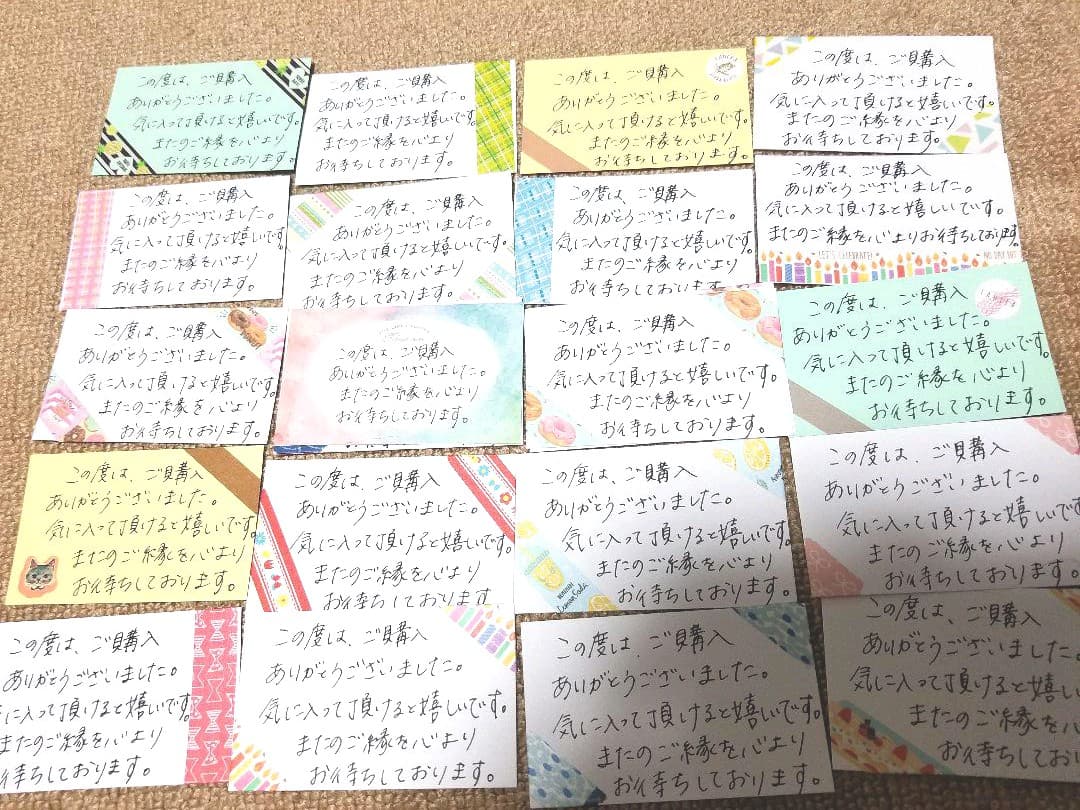 この度は、ご購入
ありがとうございました。
気に入って頂けると嬉しいです。
またのご縁を心より
お待ちしております。
この度は、ご購入
ありがとうございました。
気に入って頂けると嬉しいです。
またのご縁を心より
お待ちしております。
この度は、ご購入
ありがとうございました。
気に入って頂けると嬉しいです。
またのご縁を心より
お待ちしております。
この度は、ご購入
ありがとうございました。
気に入って頂けると嬉しいです。
またのご縁を心より
お待ちしております。
この度は、ご購入
ありがとうございました。
気に入って頂けると嬉しいです。
またのご縁を心より
お待ちしております。
この度は、ご購入
ありがとうございました。
気に入って頂けると嬉しいです。
またのご縁を心より
お待ちしております。
この度は、ご購入
ありがとうございました。
気に入って頂けると嬉しいです。
またのご縁を心より
お待ちしております。
この度は、ご購入
ありがとうございました。
気に入って頂けると嬉しいです。
またのご縁を心よりお待ちしております。
LET'S CELEBRATE!
この度は、ご購入
ありがとうございました。
気に入って頂けると嬉しいです。
またのご縁を心より
お待ちしております。
この度は、ご購入
ありがとうございました。
またのご縁を心より
お待ちしております。
この度は、ご購入
ありがとうございました。
気に入って頂けると嬉しいです。
またのご縁を心より
お待ちしております。
この度は、ご購入
ありがとうございました。
気に入って頂けると嬉しいです。
またのご縁を心より
お待ちしております。
この度は、ご購入
ありがとうございました。
気に入って頂けると嬉しいです
またのご縁を心より
お待ちしております。
この度は、ご購入
ありがとうございました。
気に入って頂けると嬉しいです。
またのご縁を心より
お待ちしております。
この度は、ご購入
ありがとうございました。
気に入って頂けると嬉しいです。
またのご縁を心より
お待ちしております。
Lemon Soda
この度は、ご購入
ありがとうございました。
気に入って頂けると嬉しいです
またのご縁を心より
お待ちしております。
この度は、ご購入
ありがとうございました。
に入って頂けると嬉しいです。
またのご縁を心より
待ちしております。
この度は、ご購入
ありがとうございました。
気に入って頂けると嬉しいです。
またのご縁を心より
お待ちしております。
この度は、ご購入
ありがとうございました。
気に入って頂けると嬉しいです。
またのご縁を心より
お待ちしております。
この度は、ご購入
ありがとうございました
気に入って頂けると嬉し
またのご縁を心
お待ちしており